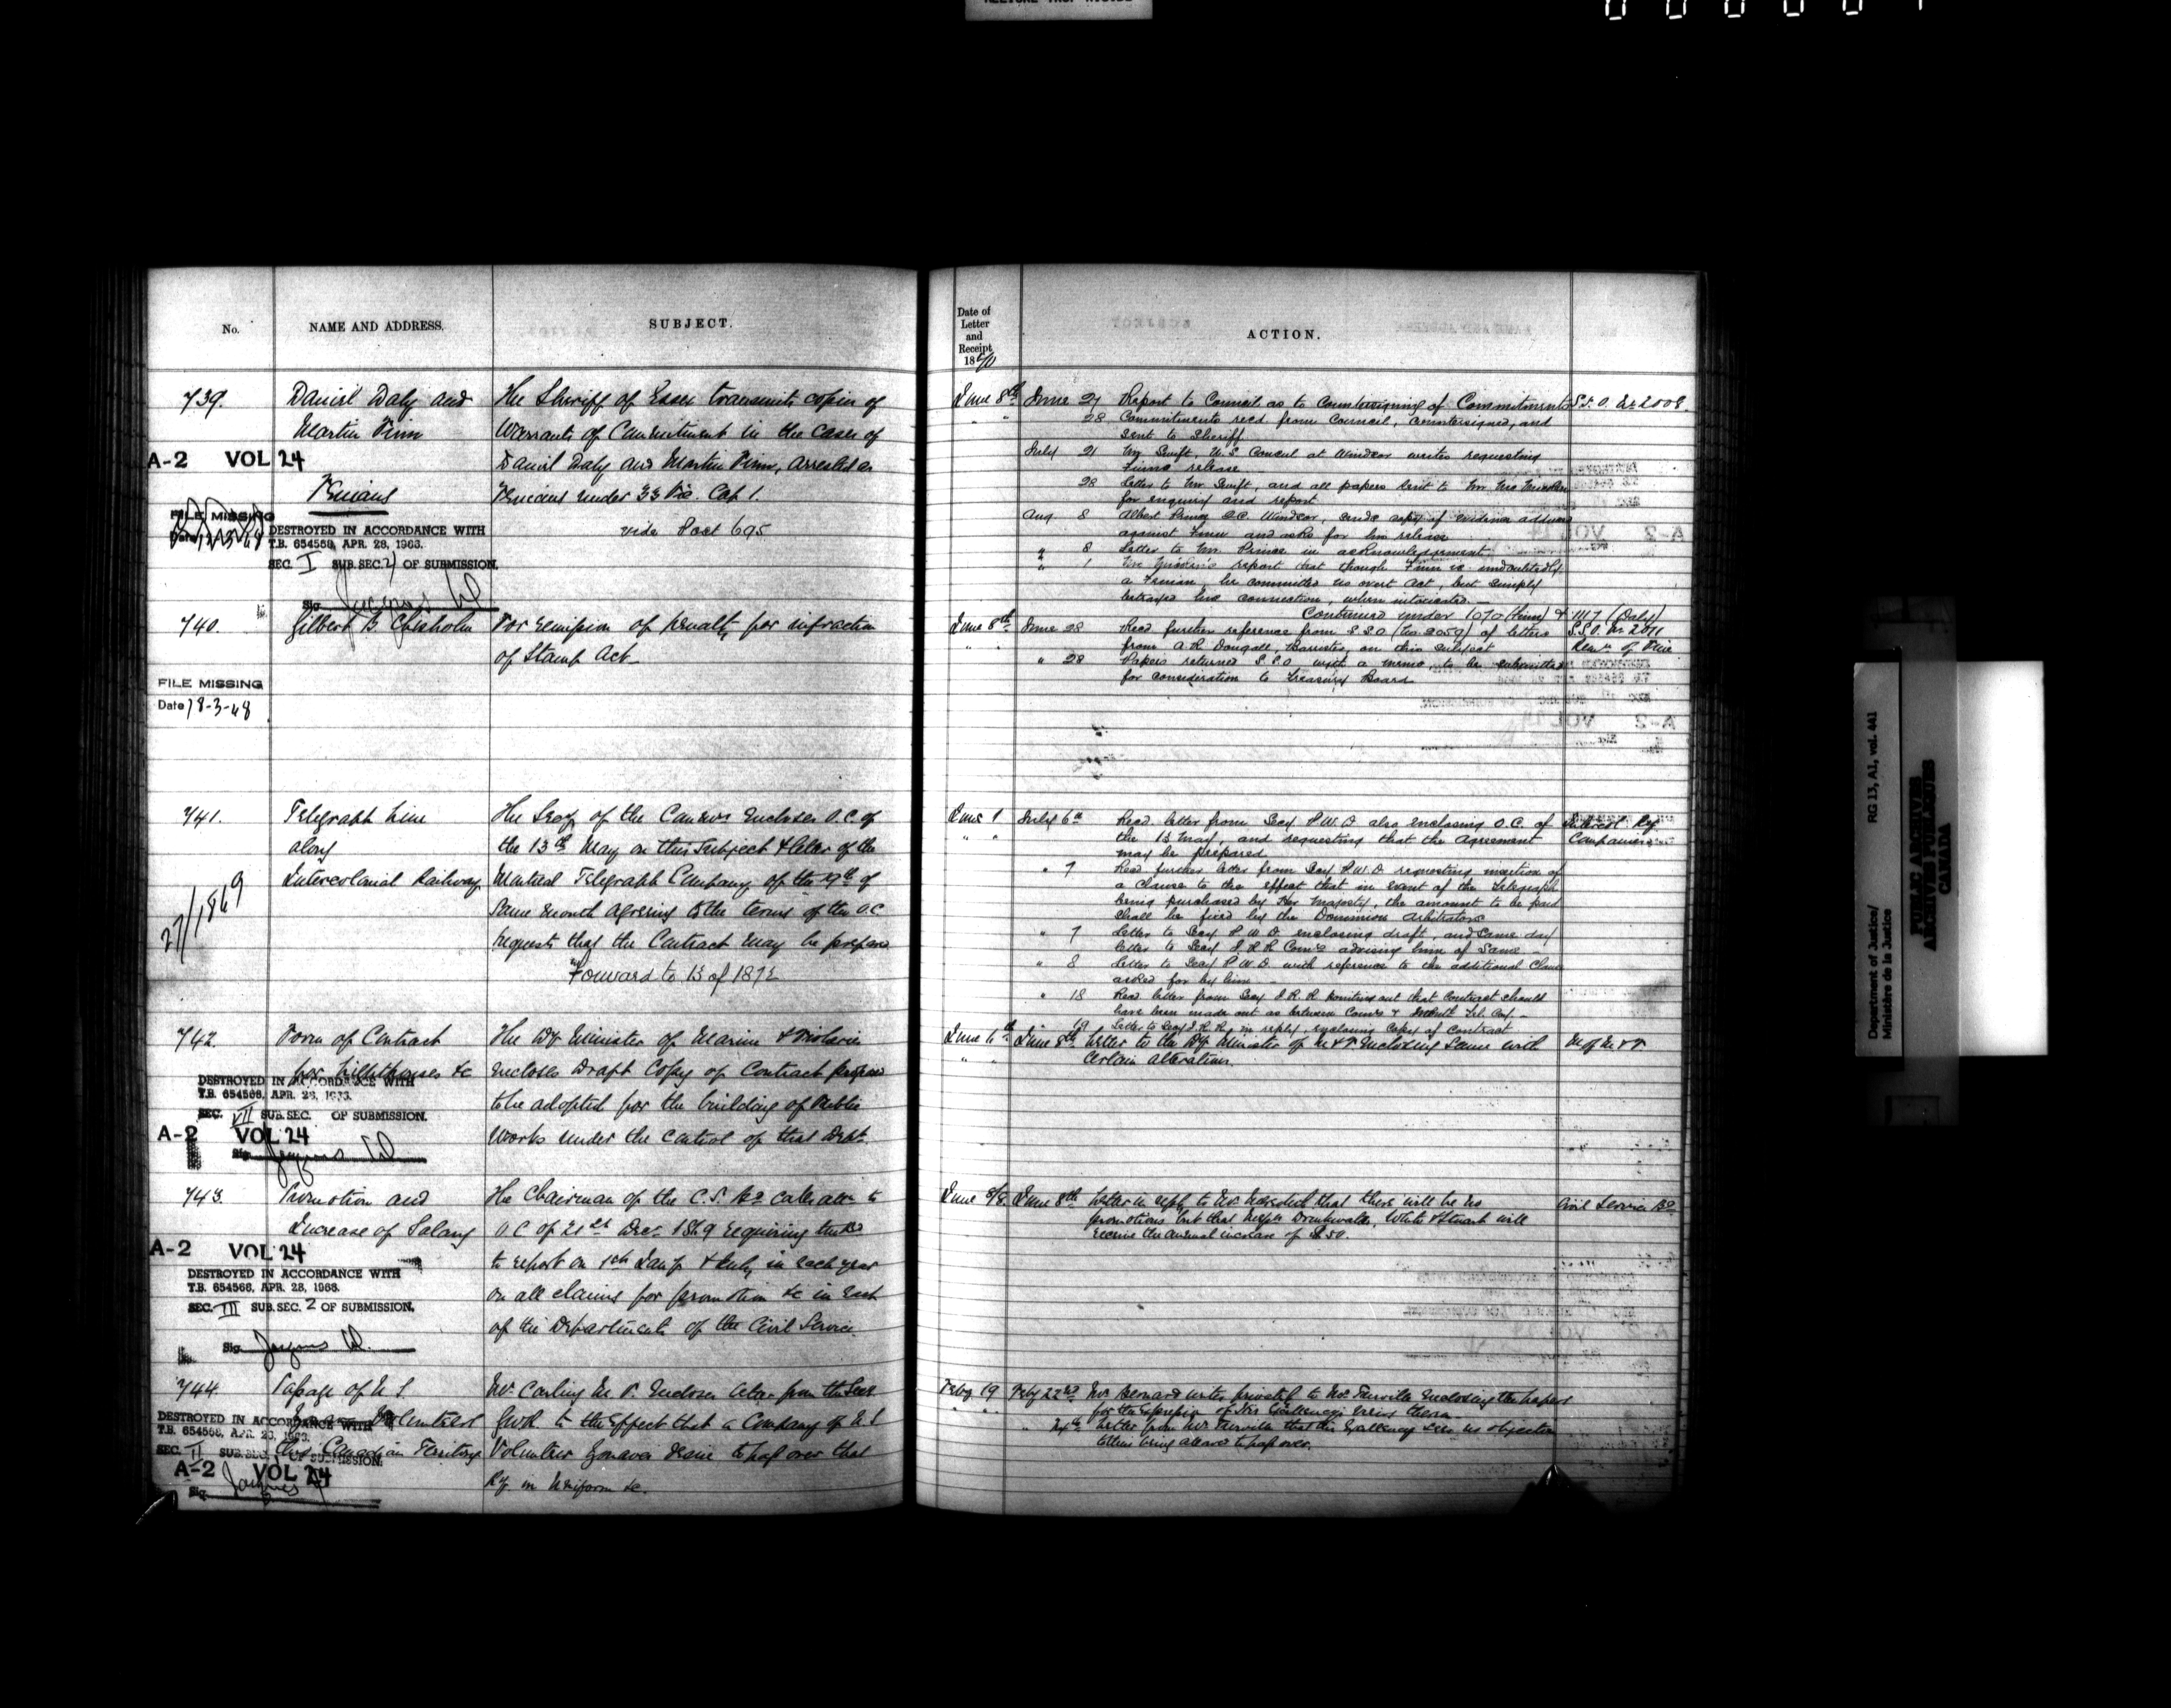 No.
NAME AND ADDRESS.
SUBJECT.
739.
Daniel Daly and
Martin Finn
A-2 VOL 24
Fenians
FILE MISSING
DESTROYED IN ACCORDANCE WITH
T.B. 654568, APR. 28, 1963.
SEC. I SUB. SEC. 2) OF SUBMISSION.
Sig.
The Sheriff of Essex transmits copies of
Warrants of Commitment in the cases of
Daniel Daly and Martin Finn, arrested as
Fenians under 33 Vic. Cap 1.
vide Post 695
740.
Gilbert B Chisholm
For remission of penalty for infraction
of Stamp Act
FILE MISSING
Date 18-3-48
741.
Telegraph Line
along
Intercolonial Railway
27/1869
The Secy of the Comrs encloses O.C. of
the 13th May on this subject & letter of the
Montreal Telegraph Company of the 29th of
same month agreeing to the terms of the O.C.
requests that the Contract may be prepared
Forward to 13 of 1872
742.
Form of Contract
for lighthouses &c
DESTROYED IN ACCORDANCE WITH
T.B. 654568, APR. 28, 1963.
SEC. VII SUB. SEC. OF SUBMISSION.
A-2 VOL 24
Sig.
The Dy Minister of Marine & Fisheries
encloses Draft Copy of Contract proposed
to be adopted for the building of Public
Works under the control of that Dept.
743.
Promotion and
Increase of Salary
A-2 VOL 24
DESTROYED IN ACCORDANCE WITH
T.B. 654568, APR. 28, 1963.
SEC. III SUB. SEC. 2 OF SUBMISSION.
Sig.
The Chairman of the C.S. Bd calls attn to
O.C. of 21st Decr 1869 requiring
to report on 1st Jany & July in each year
on all claims for promotion &c in each
of the Departments of the Civil Service.
744.
Passage of U S
Volunteers
DESTROYED IN ACCORDANCE WITH
T.B. 654568, APR. 28, 1963.
Canadian Territory
SEC. II SUB. SEC. OF SUBMISSION.
A-2 VOL 24
Sig.
Mr. Carling M. P. encloses letter from the Secy
G.W.R. to the effect that a Company of U S
Volunteer Zouaves desire to pass over that
Ry in uniform &c.
Date of
Letter
and
Receipt
18
ACTION.
June 8th
June 27 Report to Council as to Countersigning of Commitments
S.S.O. No 2008.
28 Commitments recd from Council, countersigned, and
sent to Sheriff
July 21 Mr Swift, U.S. Consul at Windsor writes requesting
Finns release
28 Letter to Mr Swift, and all papers sent to Mr Mc
for enquiry and report
Aug. 8 Albert Prince Q.C. Windsor, sends copy of evidence adduced
against Finn and asks for his release
" 8 Letter to Mr. Prince in acknowledgement
" 1 report that though Finn is undoubtedly
a Fenian, he committed no overt act, but simply
betrayed his connection, when intoxicated.
Continued under 1070 (Finn) & 1117 (Daly)
June 8th
June 28 Recd further reference from S.S.O (No. 2059) of letters
from A.R. Dougall, Barrister, on this subject
S.S.O. No 2011
Remn of Fine
" 28 Papers returned S.S.O with a memo, to be submitted
for consideration to Treasury Board
June 1
July 6th Recd letter from Secy P.W.D also enclosing O.C. of
the 13 May, and requesting that the Agreement
may be prepared
Intercol Ry
" 7 Recd further letter from Secy P.W.D requesting insertion of
a clause to the effect that in event of the Telegraph
being purchased by Her Majesty, the amount to be paid
shall be fixed by the Dominion Arbitrators
" 7 Letter to Secy P.W.D enclosing draft, and same day
letter to Secy I.R.R Comrs advising him of same
" 8 Letter to Secy P.W.D. with reference to the additional Clause
asked for by him
" 18 Recd letter from Secy I.R.R. pointing out that contract should
have been made out as between Comrs & Montl Tel. Coy.
" 19 Letter to Secy I.R.R. in reply, enclosing copy of contract
June 6th
June 8th Letter to the Dy Minister of M & F. enclosing same with
certain alterations.
M of M & F.
June 8/8
June 8th Letter in reply to Mr that there will be no
promotions but that Messrs Drinkwater, White & Stuart will
receive the annual increase of $50.
Civil Service Bd
Feby 19
Feby 22nd Mr Bernard writes privately to Mr. Turville enclosing the papers
for the expression of His Excellencys views thereon
" 24th Letter from Mr Turville that His Excellency sees no objection
to their being allowed to pass over.
Department of Justice/
Ministère de la Justice
RG 13, A1, vol. 441
PUBLIC ARCHIVES
ARCHIVES PUBLIQUES
CANADA